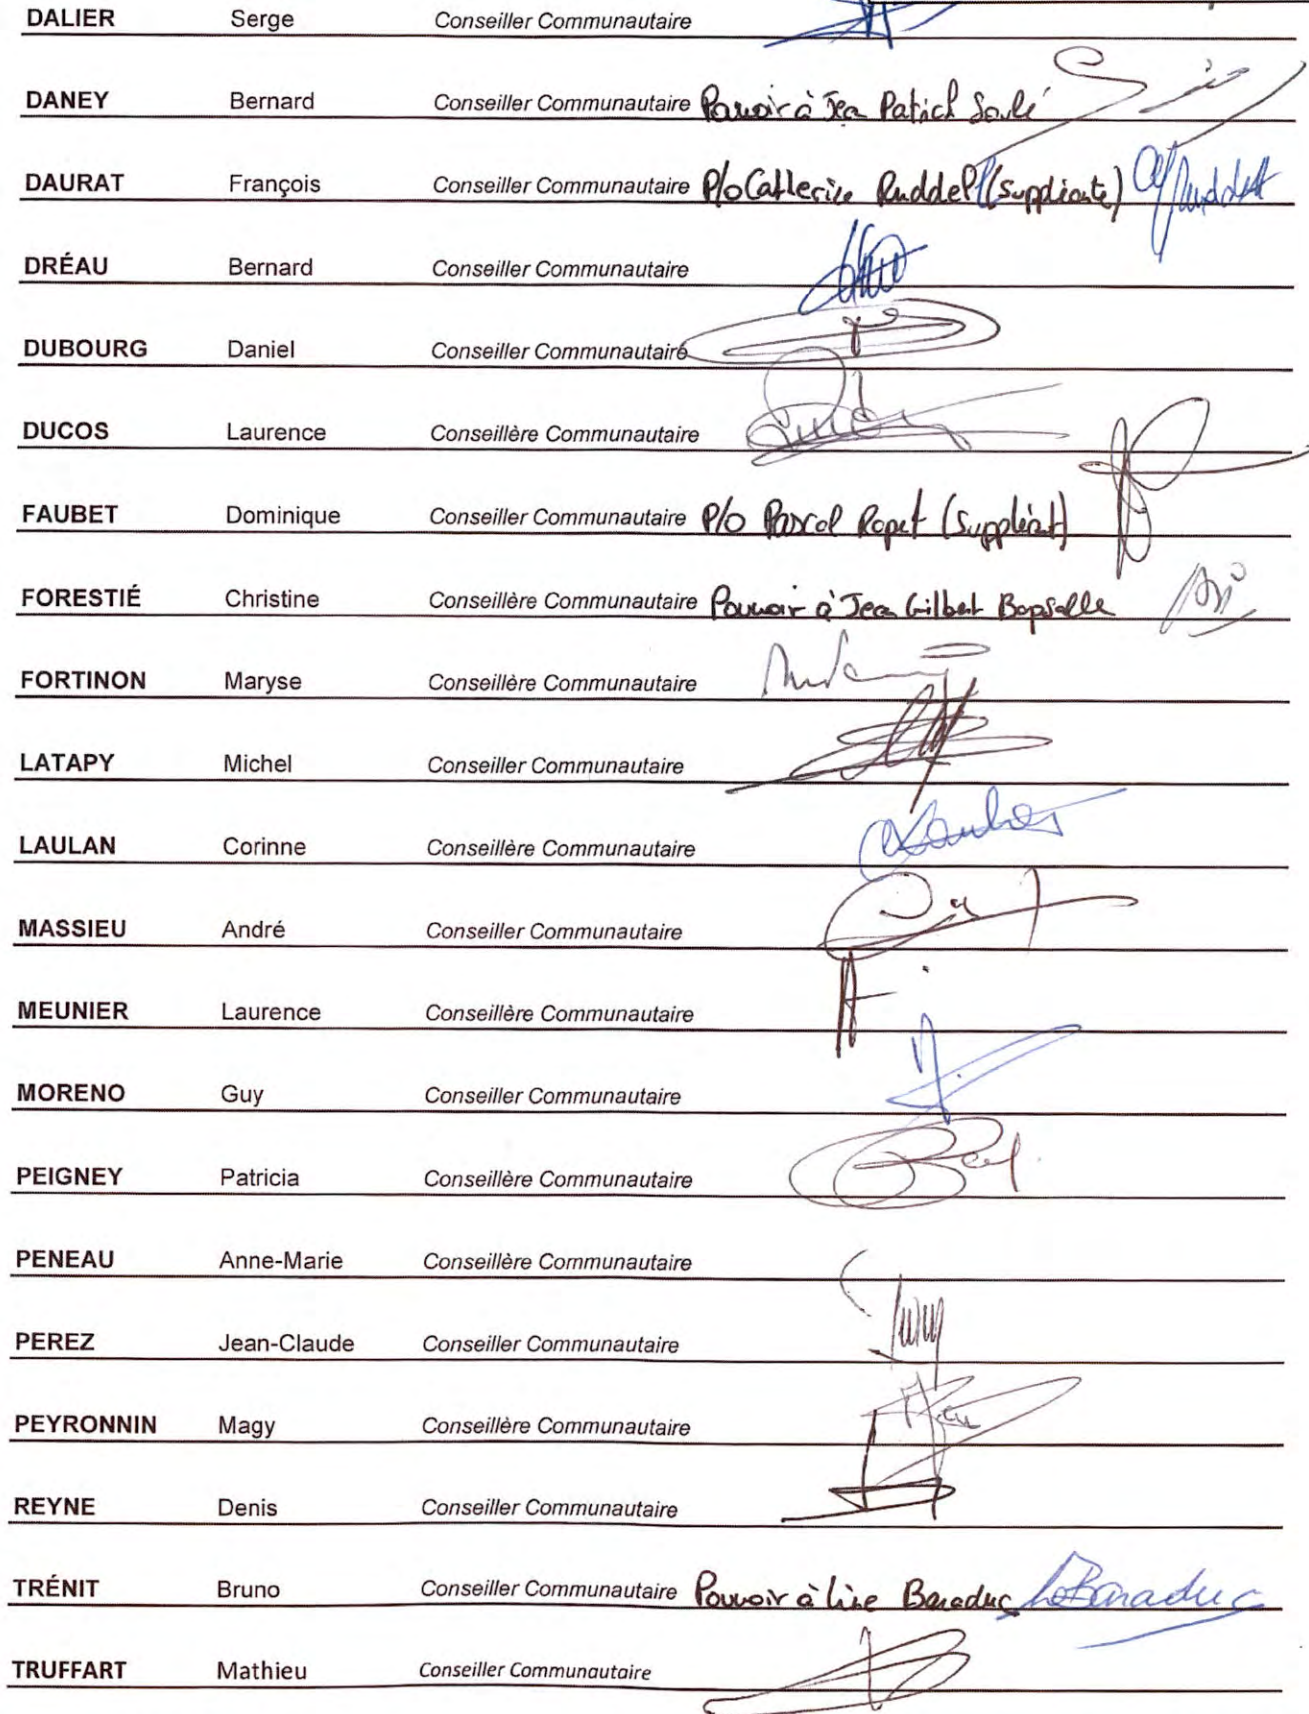 DALIER Serge Conseiller Communautaire
DANEY Bernard Conseiller Communautaire Pouvoir à Jean Patrick Soulé
DAURAT François Conseiller Communautaire P/o Catherine Ruddell (suppléante)
DRÉAU Bernard Conseiller Communautaire
DUBOURG Daniel Conseiller Communautaire
DUCOS Laurence Conseillère Communautaire
FAUBET Dominique Conseiller Communautaire P/o Pascal Rapet (suppléant)
FORESTIÉ Christine Conseillère Communautaire Pouvoir à Jean Gilbert Bapsalle
FORTINON Maryse Conseillère Communautaire
LATAPY Michel Conseiller Communautaire
LAULAN Corinne Conseillère Communautaire
MASSIEU André Conseiller Communautaire
MEUNIER Laurence Conseillère Communautaire
MORENO Guy Conseiller Communautaire
PEIGNEY Patricia Conseillère Communautaire
PENEAU Anne-Marie Conseillère Communautaire
PEREZ Jean-Claude Conseiller Communautaire
PEYRONNIN Magy Conseillère Communautaire
REYNE Denis Conseiller Communautaire
TRÉNIT Bruno Conseiller Communautaire Pouvoir à Line Baraduc
TRUFFART Mathieu Conseiller Communautaire